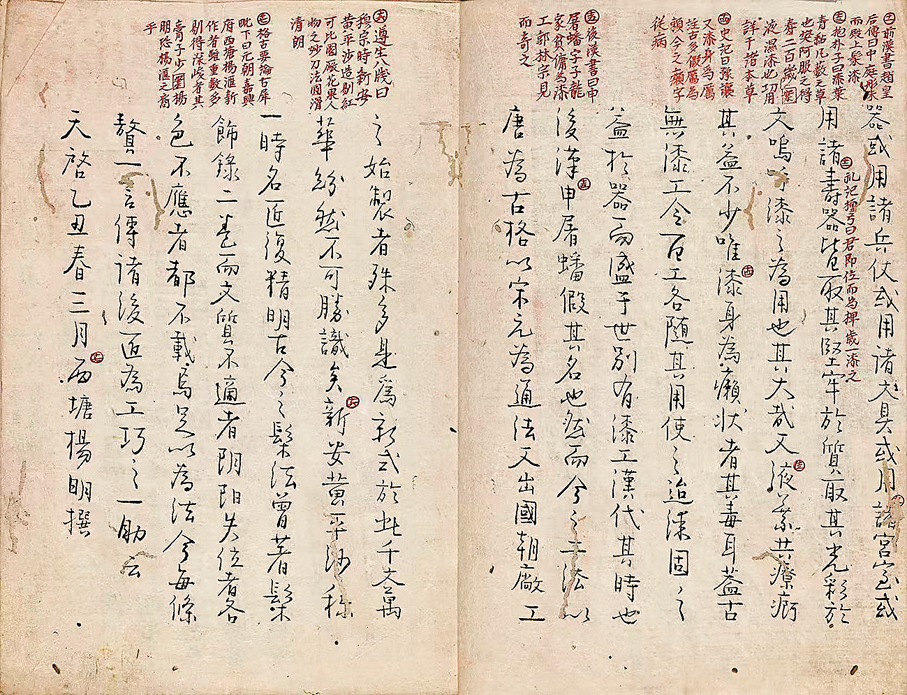 前漢書趙皇
后傳曰中庭彤朱
而殿上髹漆
抱朴子曰漆葉
青黏凡數之草
也樊阿服之得
壽二百歲
液濕漆也功用
詳于諸本草
史記曰豫讓
又漆身為厲
注古多假厲為
癩今之癩字
從病
後漢書曰申
屠蟠字子龍
家貧傭為漆
工郭林宗見
而奇之
器或用諸兵仗或用諸文具或用諸宮室或
用諸壽器皆取其堅牢於質取其光彩於
礼記檀弓曰君即位而為椑歲一漆之
文嗚呼漆之為用也其大哉又液葉共療疴
其益不少唯漆身為癩狀者其毒耳蓋古
無漆工令百工各随其用使之治漆固之
益於器而盛于世別有漆工漢代其時也
後漢申屠蟠假其名也然而今之工法以
唐為古格以宋元為通法又出國朝廠工
遵生八牋曰
穆宗時新安
黄平沙造剔紅
可比園廠花果人
物之妙刀法圓滑
清朗
格古要論古犀
毗下曰元朝嘉興
府西塘楊滙新
作者雖重數多
剔得深峻者其
膏子少
明恐楊滙之裔
乎
之始製者殊多是為新式於此千文萬
華紛然不可勝識矣新安黄平沙称
一時名匠復精明古今之髹法曾著髹
飾錄二卷而文質不適者阴阳失位者各
色不應者都不載焉足以為法今每條
贅一言傳諸後匠為工巧之一助云
天啓乙丑春三月西塘楊明撰